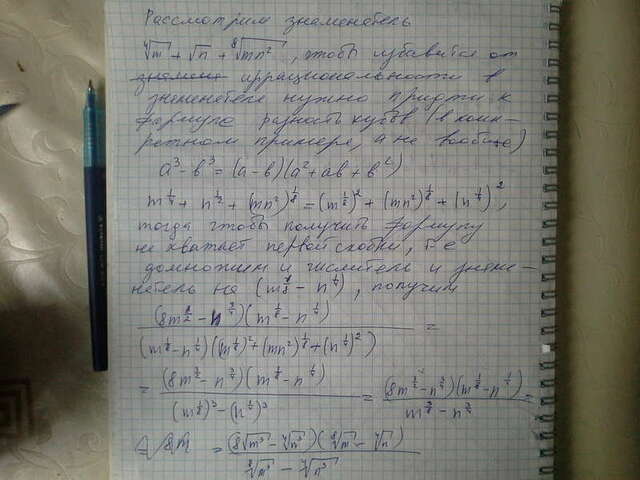 Рассмотрим знаменатель
⁴√m + √n + ⁸√mn², чтобы избавится от
иррациональности в
знаменателе нужно придти к
формуле разность кубов (в конк-
ретном примере, а не вообще)
a³-b³=(a-b)(a²+ab+b²)
m^(1/4) + n^(1/2) + (mn²)^(1/8) = (m^(1/8))² + (mn²)^(1/8) + (n^(1/4))²,
тогда чтобы получить формулу
не хватает первой скобки, т.е
домножим и числитель и знаме-
натель на (m^(1/8) - n^(1/4)), получим
(8m^(3/2) - n^(3/4))(m^(1/8) - n^(1/4)) =
(m^(1/8) - n^(1/4))((m^(1/8))² + (mn²)^(1/8) + (n^(1/4))²)
= (8m^(3/2) - n^(3/4))(m^(1/8) - n^(1/4)) = (8m^(3/2) - n^(3/4))(m^(1/8) - n^(1/4)) =
(m^(1/8))³ - (n^(1/4))³ m^(3/8) - n^(3/4)
= (8√m³ - ⁴√n³)(⁸√m - ⁴√n)
⁸√m³ - ⁴√n³